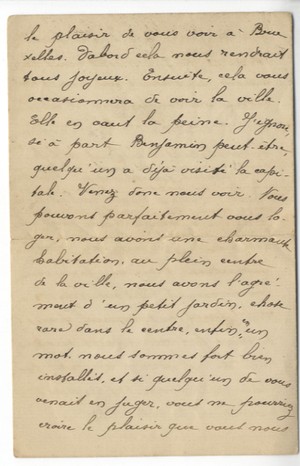 le plaisir de vous voir à Bru-
xelles. D'abord cela nous rendrait
tous joyeux. Ensuite, cela vous
occasionnera de voir la ville.
Elle en vaut la peine. J'ignore
si à part Benjamin peut-être,
quelqu'un a déjà visité la capi-
tale. Venez donc nous voir. Nous
pouvons parfaitement vous lo-
ger, nous avons une charmante
habitation, au plein centre
de la ville, nous avons l'agré-
ment d'un petit jardin, chose
rare dans le centre, enfin, en un
mot, nous sommes fort bien
installés, et si quelqu'un de vous
venait en juger, vous ne pourriez
croire le plaisir que vous nous